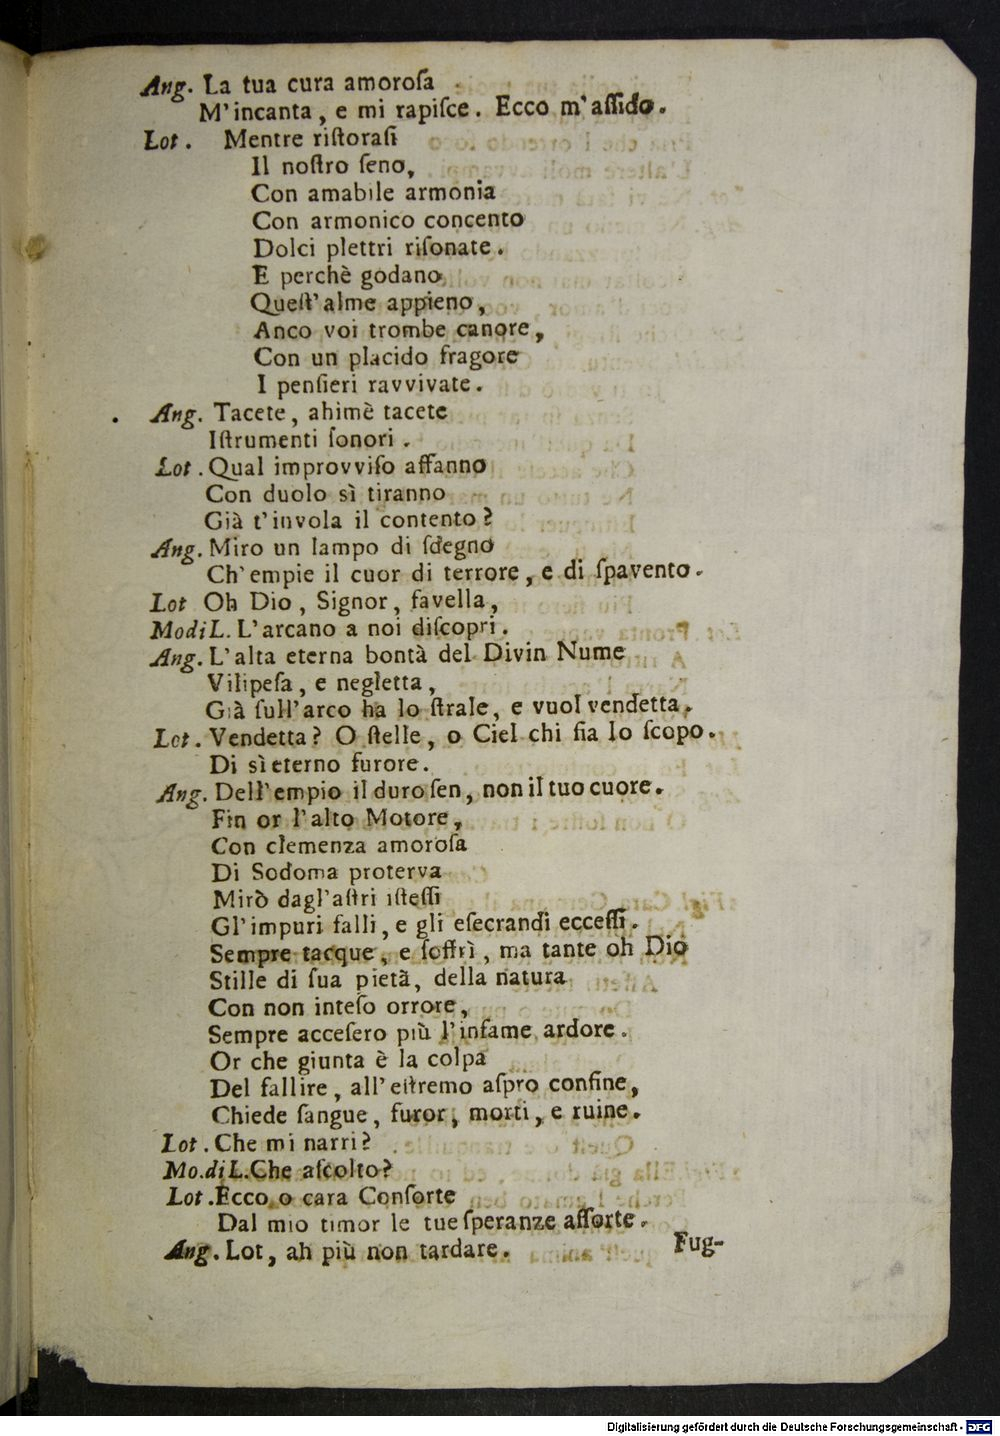 Ang. La tua cura amoroſa
M'incanta, e mi rapiſce. Ecco m'aſſido.
Lot. Mentre riſtoraſi
Il noſtro ſeno,
Con amabile armonia
Con armonico concento
Dolci plettri riſonate.
E perchè godano
Queſt'alme appieno,
Anco voi trombe canore,
Con un placido fragore
I penſieri ravvivate.
Ang. Tacete, ahimè tacete
Iſtrumenti ſonori.
Lot. Qual improvviſo affanno
Con duolo sì tiranno
Già t'invola il contento?
Ang. Miro un lampo di ſdegno
Ch'empie il cuor di terrore, e di ſpavento.
Lot Oh Dio, Signor, favella,
Modi L. L'arcano a noi diſcopri.
Ang. L'alta eterna bontà del Divin Nume
Vilipeſa, e negletta,
Già ſull'arco ha lo ſtrale, e vuol vendetta.
Lot. Vendetta? O ſtelle, o Ciel chi ſia lo ſcopo.
Di sì eterno furore.
Ang. Dell'empio il duro ſen, non il tuo cuore.
Fin or l'alto Motore,
Con clemenza amoroſa
Di Sodoma proterva
Mirò dagl'aſtri iſteſſi
Gl'impuri falli, e gli eſecrandi ecceſſi.
Sempre tacque, e ſoffrì, ma tante oh Dio
Stille di ſua pietà, della natura
Con non inteſo orrore,
Sempre acceſero più l'infame ardore.
Or che giunta è la colpa
Del fallire, all'eſtremo aſpro confine,
Chiede ſangue, furor, morti, e ruine.
Lot. Che mi narri?
Mo. di L. Che aſcolto?
Lot. Ecco o cara Conſorte
Dal mio timor le tue ſperanze aſſorte.
Ang. Lot, ah più non tardare.
Fug-
Digitalisierung gefördert durch die Deutsche Forschungsgemeinschaft - DFG